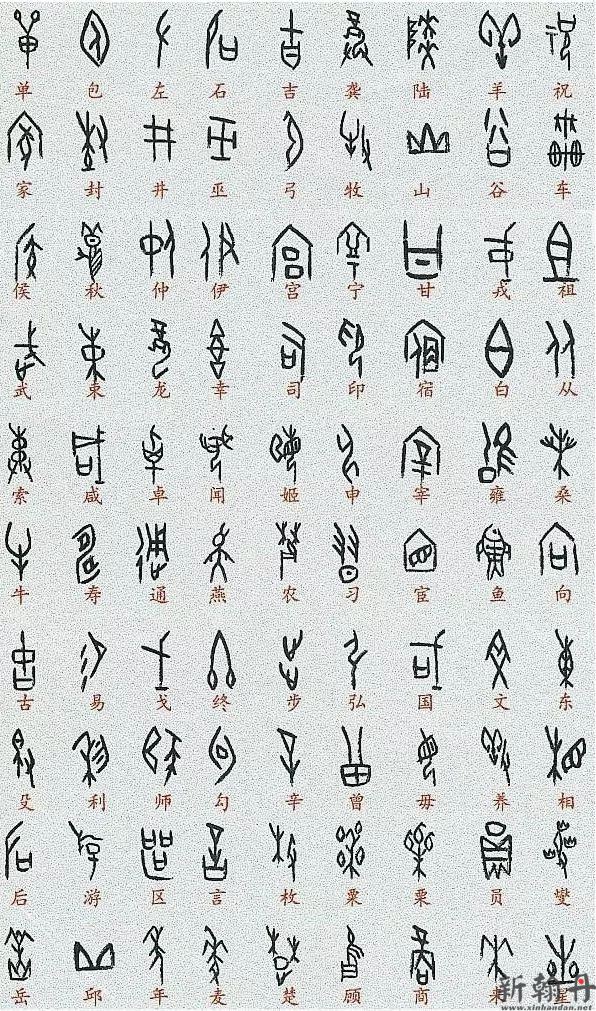 单 包 左 石 吉 龚 陆 羊 祝
家 封 井 巫 弓 牧 山 谷 车
侯 秋 仲 伊 宫 宁 甘 戎 祖
武 束 龙 幸 司 印 宿 白 从
索 咸 卓 闻 姬 申 宰 雍 桑
牛 寿 通 燕 农 习 宦 鱼 向
古 易 戈 终 步 弘 国 文 东
殳 利 师 勾 辛 曾 毋 养 相
后 游 区 言 枚 粟 栗 员 燮
岳 邱 年 麦 楚 顾 商 来 星
新翰丹
www.xinhandan.net